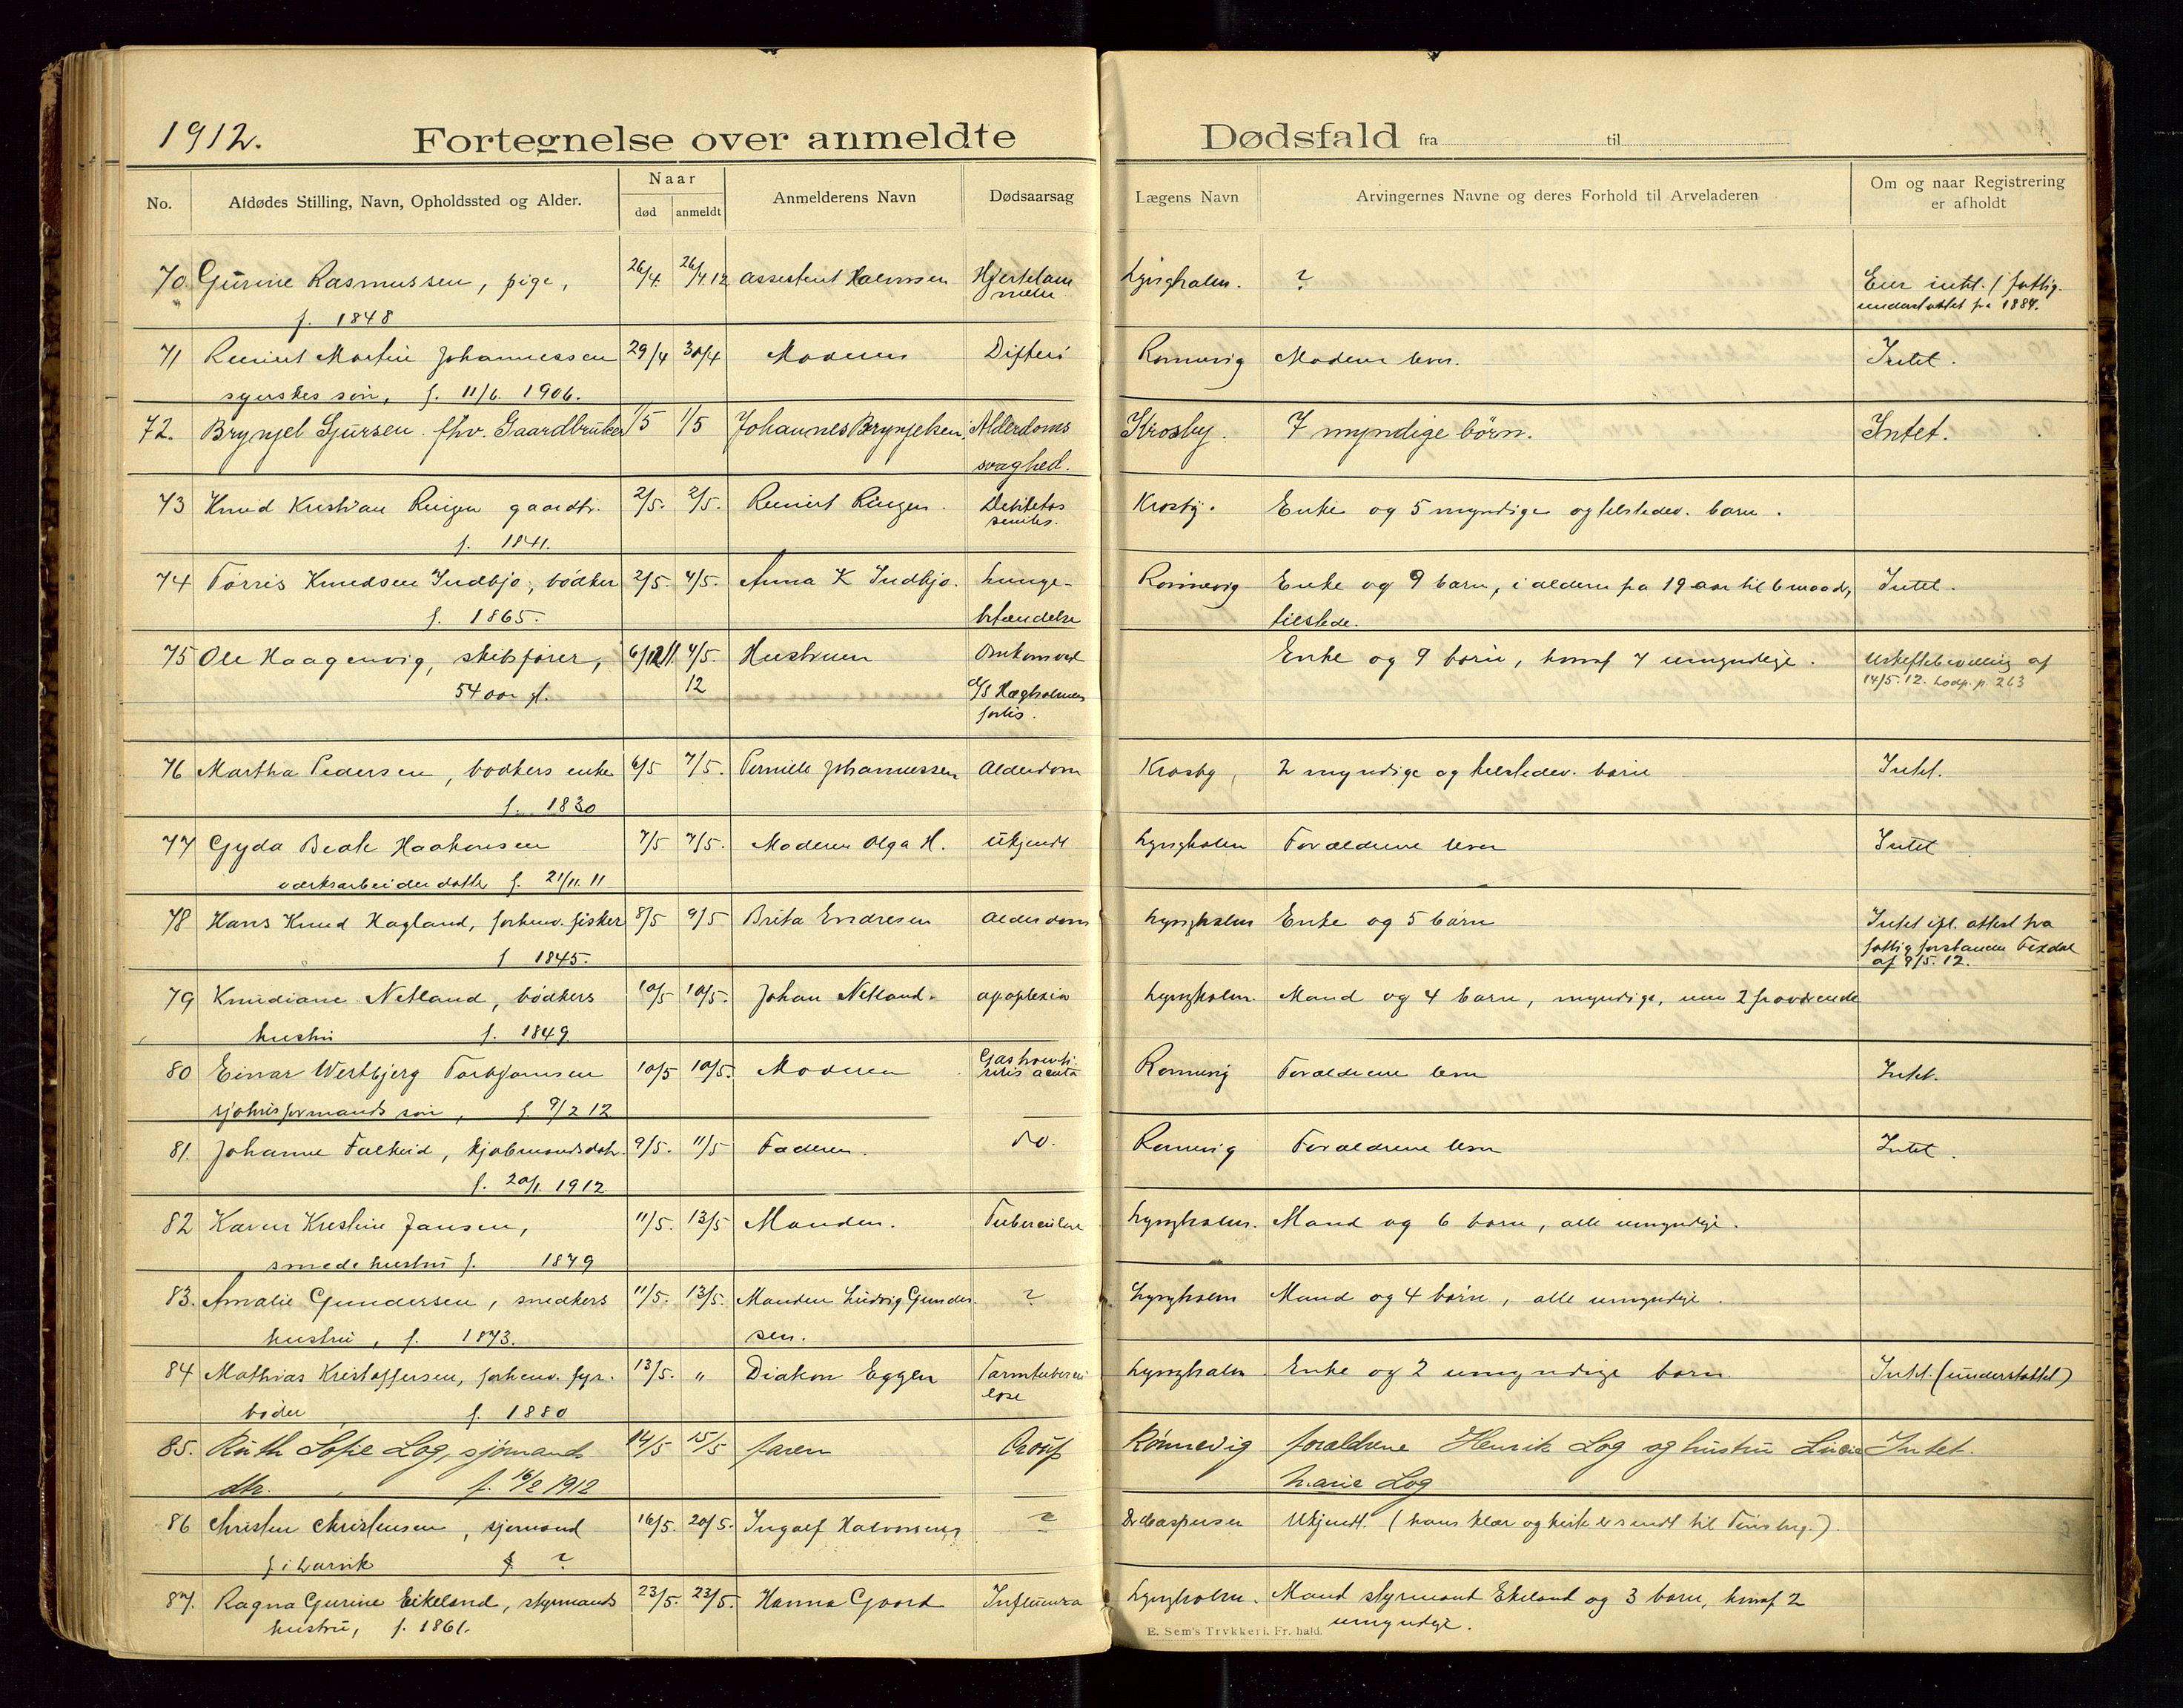 1912.
Fortegnelse over anmeldte Dødsfald fra til
No.
Afdødes Stilling, Navn, Opholdssted og Alder.
Naar
død
anmeldt
Anmelderens Navn
Dødsaarsag
Lægens Navn
Arvingernes Navne og deres Forhold til Arveladeren
Om og naar Registrering
er afholdt
70 Gurine Rasmussen, pige, 26/4. 26/4.12 assestent Halvorsen Lyngholm. ?
f. 1848 understøttet fra 1884.
71 Martin Johannessen 29/4 30/4 Moderen Difteri Rønnevig Moderen lever. Intet.
syerskes søn, f. 11/6. 1906.
72. Brynjel Sjursen fhv. Gaardbruker 1/5 1/5 Johannes Brynjelsen Alderdoms Krosby. 7 myndige börn. Intet.
svaghed.
73 Knud Kristian Ringen gaardbr. 2/5. 2/5. Reinert Ringen. Krosby. Enke og 5 myndige og tilstedev. børn.
f. 1841. seniles.
74 Tørris Knudsen Indbjo, bødker 2/5. 4/5. Anna K Indbjo. Lunge- Rönnevig Enke og 9 børn, i alderen fra 19 aar til 6 maaned, Intet.
f. 1865. betændelse tilstede.
75 Ole Haagenvig, skibsfører, 4/5. Hustruen Omkommet Enke og 9 børn, hvoraf 7 umyndige. Uskiftebevilling af
54 aar gl. 12 14/5.12. p. 263
forlis.
76 Martha Pedersen, bødkers enke 6/5 7/5. Pernille Johannessen Alderdom Krosby, 2 myndige og tilstedev. børn Intet.
f. 1830
77 Gyda Beate Haakonsen 7/5 7/5. Moderen Olga H. Ukjendt Lyngholm Forældrene lever Intet
værksarbeider datter f. 21/11. 11
78 Hans Knud Hagland, forhenv. fisker 8/5 9/5 Brita Endresen Alderdom Lyngholm Enke og 5 børn Intet ifl. attest fra
f 1845. fattigforstander Fixdal
af 9/5. 12.
79 Knudiane Netland, bødkers 10/5 10/5. Johan Netland. apoplexia Lyngholm. Mand og 4 børn, myndige, 2 fraværende
hustru f. 1849
80 Einar Westbjerg Torbjørnsen 10/5 10/5. Moderen Rønnevig Forældrene lever Intet.
acuta
søn, f. 9/2 12
81. Johanne Falkeid, kjøbmandsdatr. 9/5. 11/5 Faderen. do. Rønnevig Forældrene lever Intet.
f. 20/1. 1912
82 Karen Kristine Jansen, 11/5. 13/5 Manden. Tuberculose Lyngholm. Mand og 6 børn, alle umyndige.
smedehustru f. 1879
83. Amalie Gundersen, snedkers 11/5. 13/5. Manden Ludvig Gunder- ? Lyngholm Mand og 4 børn, alle umyndige.
hustru, f. 1873. sen.
84 Mathias Kristoffersen, forhenv. fyr- 13/5. „ Diakon Eggen Tarmtubercu Lyngholm. Enke og 2 umyndige børn. Intet. (understøttet)
bøder f. 1880 lose
85. Ruth Sofie Log, sjömands 14/5 15/5 faren Croup Rönnevig forældrene Henrik Log og hustru Intet.
dtr. f. 16/2 1912 Marie Log
86 Christen Christensen, sjømand 16/5. 20/5. Ingolf Halvorsen ? Dr. Caspersen Ukjendt. (hans klær og kiste er sendt til Tønsberg.)
f. i Larvik f. ?
87. Ragna Gurine Eikeland, styrmands 23/5. 23/5. Hanna Gaard Influenza Lyngholm. Mand styrmand Ekeland og 3 børn, hvoraf 2
hustru, f. 1861. umyndige.
E. Sem's Trykkeri. Fr. hald.